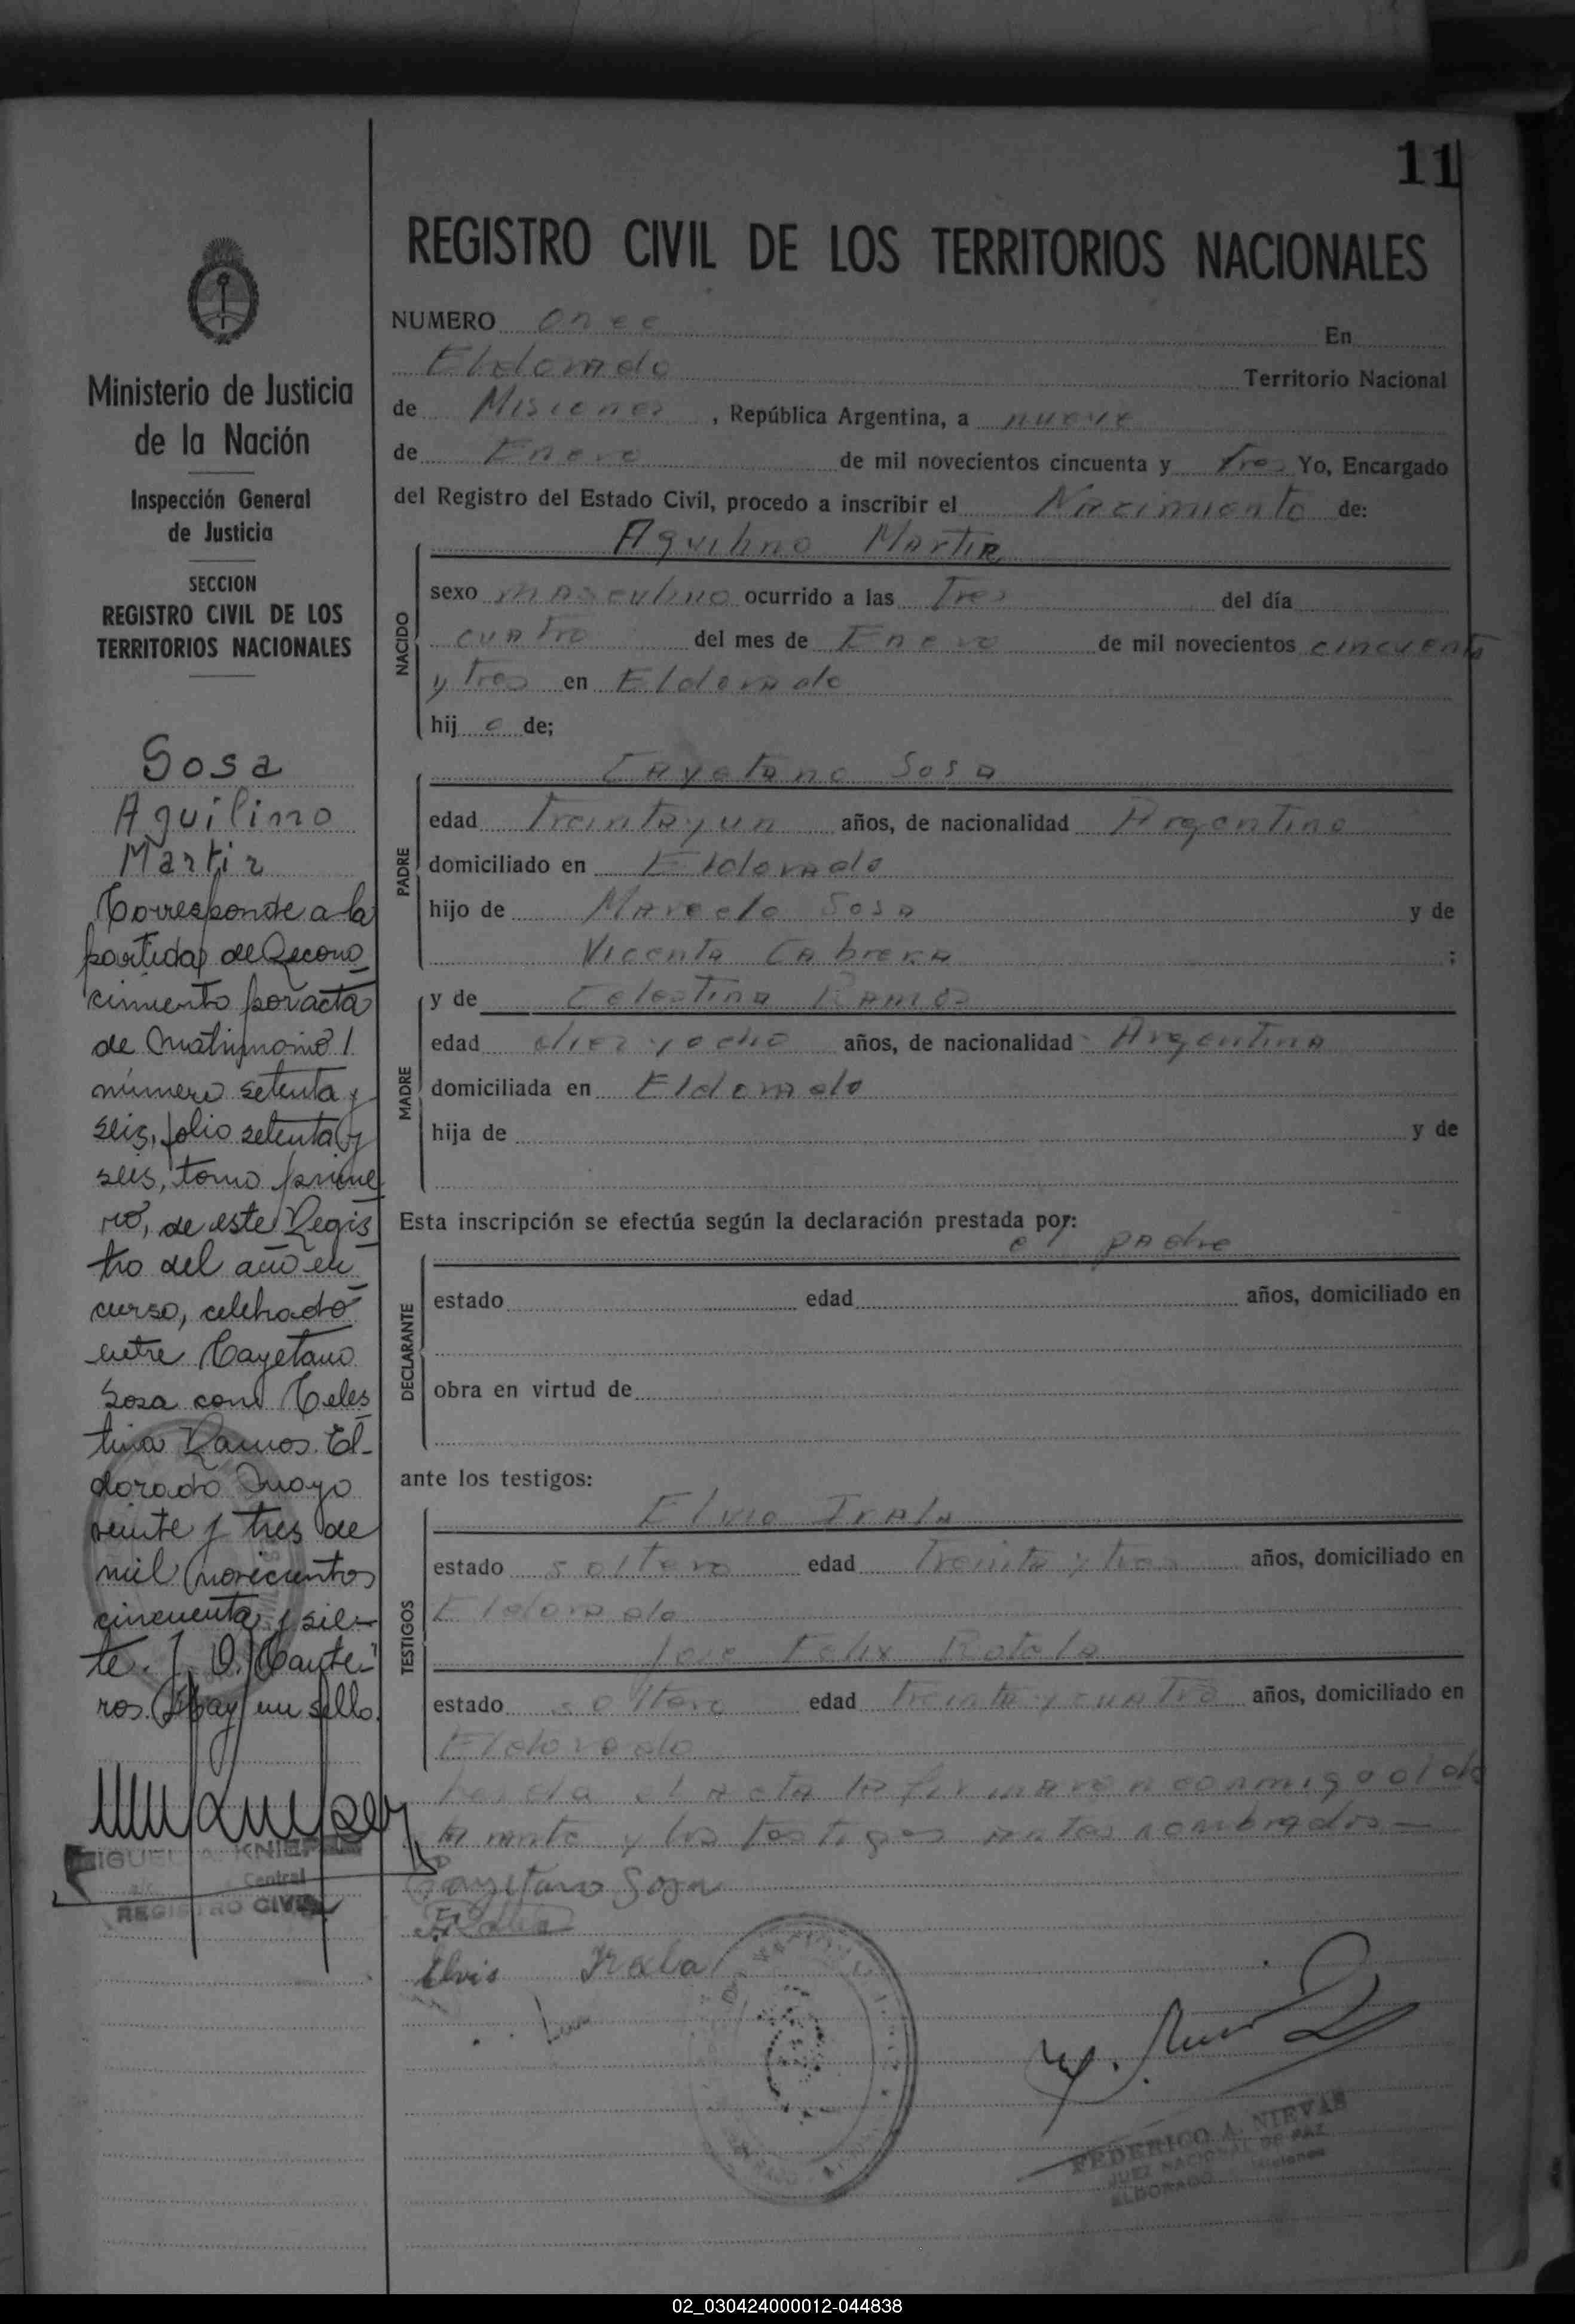 11
REGISTRO CIVIL DE LOS TERRITORIOS NACIONALES
Ministerio de Justicia
de la Nación
Inspección General
de Justicia
SECCION
REGISTRO CIVIL DE LOS
TERRITORIOS NACIONALES
Sosa
Aquilino
Martir
Corresponde a la
partida de Recono
cimiento por acta
de Matrimonio
número setenta y
seis, folio setenta y
seis, tomo prime
ro, de este Regis
tro del año en
curso, celebrado
entre Cayetano
Sosa con Celes
tina Ramos. El-
dorado Mayo
veinte y tres de
mil novecientos
cincuenta y sie-
te.
ros. (Hay un sello.
MIGUEL A. KNIEPER
Central
REGISTRO CIVIL
NUMERO once En
Eldorado Territorio Nacional
de Misiones, República Argentina, a nueve
de Enero de mil novecientos cincuenta y tres Yo, Encargado
del Registro del Estado Civil, procedo a inscribir el Nacimiento de:
Aquilino Martir
NACIDO
sexo masculino ocurrido a las Tres del día
cuatro del mes de Enero de mil novecientos cincuenta
y tres en Eldorado
hij o de;
Cayetano Sosa
PADRE
edad Treinta y un años, de nacionalidad Argentino
domiciliado en Eldorado
hijo de Marcelo Sosa y de
Vicenta Cabrera ;
MADRE
y de Celestina Ramos
edad diez y ocho años, de nacionalidad Argentina
domiciliada en Eldorado
hija de y de
Esta inscripción se efectúa según la declaración prestada por:
el padre
DECLARANTE
estado edad años, domiciliado en
obra en virtud de
ante los testigos:
Elvio Irala
TESTIGOS
estado soltero edad Treinta y tres años, domiciliado en
Eldorado
Jose Felix Rotela
estado soltero edad treinta y cuatro años, domiciliado en
Eldorado
Leida el acta la firmaron conmigo el de
y los testigos antes nombrados—
Cayetano Sosa
Elvio Irala
FEDERICO A. NIEVAS
JUEZ NACIONAL DE PAZ
ELDORADO Misiones
02_030424000012-044838